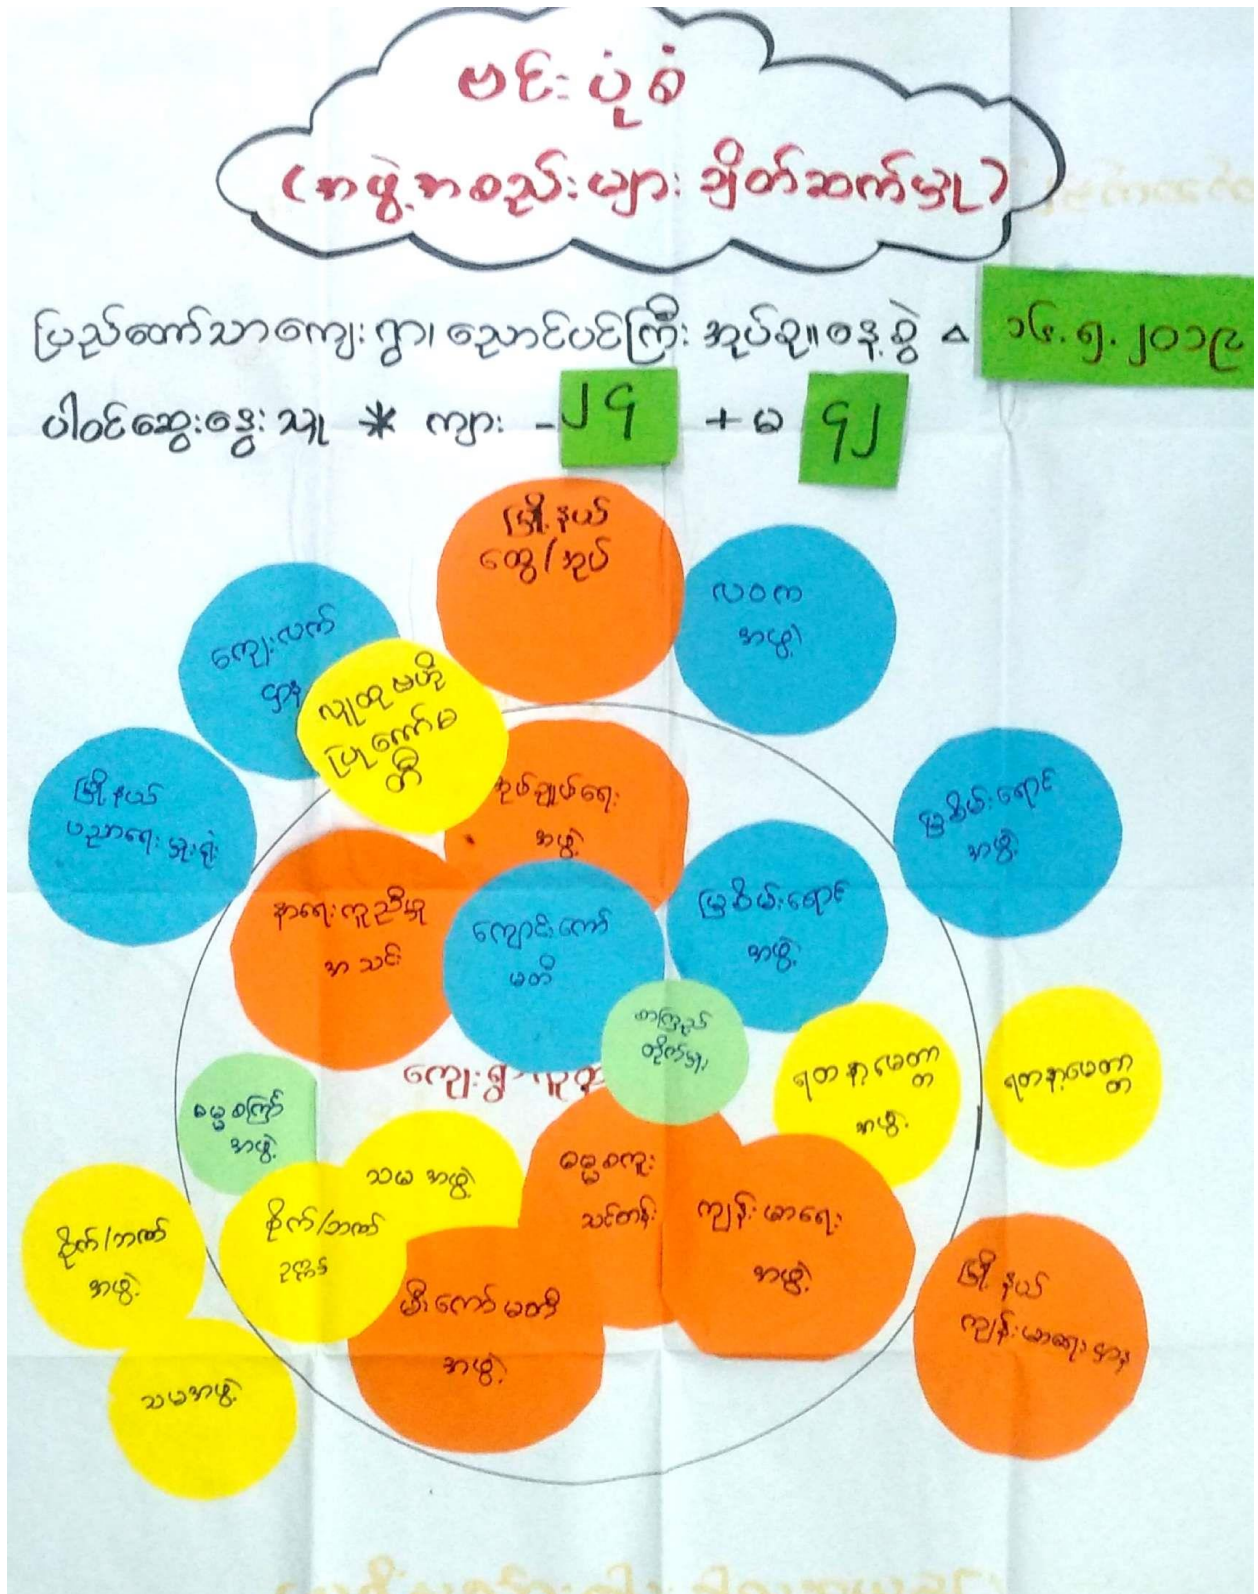 ဗင်းပုံစံ
(အဖွဲ့အစည်းများ ချိတ်ဆက်မှု)
ပြည်တော်သာကျေးရွာ၊ ညောင်ပင်ကြီး အုပ်စု။ နေ့စွဲ
၁၆.၅.၂၀၁၉
ပါဝင်ဆွေးနွေးသူ * ကျား - ၂၄ + မ ၄၂
မြို့နယ်
ထွေ/အုပ်
လဝက
အဖွဲ့
ကျေးလက်
ဌာန
လူထုဗဟို
ပြုကော်မ
တီ
မြို့နယ်
ပညာရေးမှူးရုံး
အုပ်ချုပ်ရေး
အဖွဲ့
မြစိမ်းရောင်
အဖွဲ့
နာရေးကူညီမှု
အသင်း
ကျောင်းကော်
မတီ
မြစိမ်းရောင်
အဖွဲ့
စာကြည့်
တိုက်မှူး
ကျေးရွာလူထု
ရတနာ့မေတ္တာ
အဖွဲ့
ရတနာ့မေတ္တာ
ဓမ္မစကြာ
အဖွဲ့
သမအဖွဲ့
ဓမ္မစကူး
သင်တန်း
ကျန်းမာရေး
အဖွဲ့
စိုက်/ဘဏ်
အဖွဲ့
စိုက်/ဘဏ်
ဥက္ကဋ္ဌ
မီးကော်မတီ
အဖွဲ့
မြို့နယ်
ကျန်းမာရေးဌာန
သမအဖွဲ့